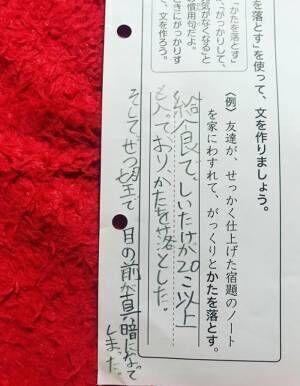 を落とす」を使って、文を作りましょう。
「かたを落とす」
「がっかりして、
気がなくなる」と
慣用句だよ。
きにがっかりす
文を作ろう。
〈例〉友達が、せっかく仕上げた宿題のノート
を家にわすれて、がっくりとかたを落とす。
給食で、しいたけが20こ以上
も入っており、かたを落とした。
そしてぜつ望して 目の前が真っ暗になって
しまった。